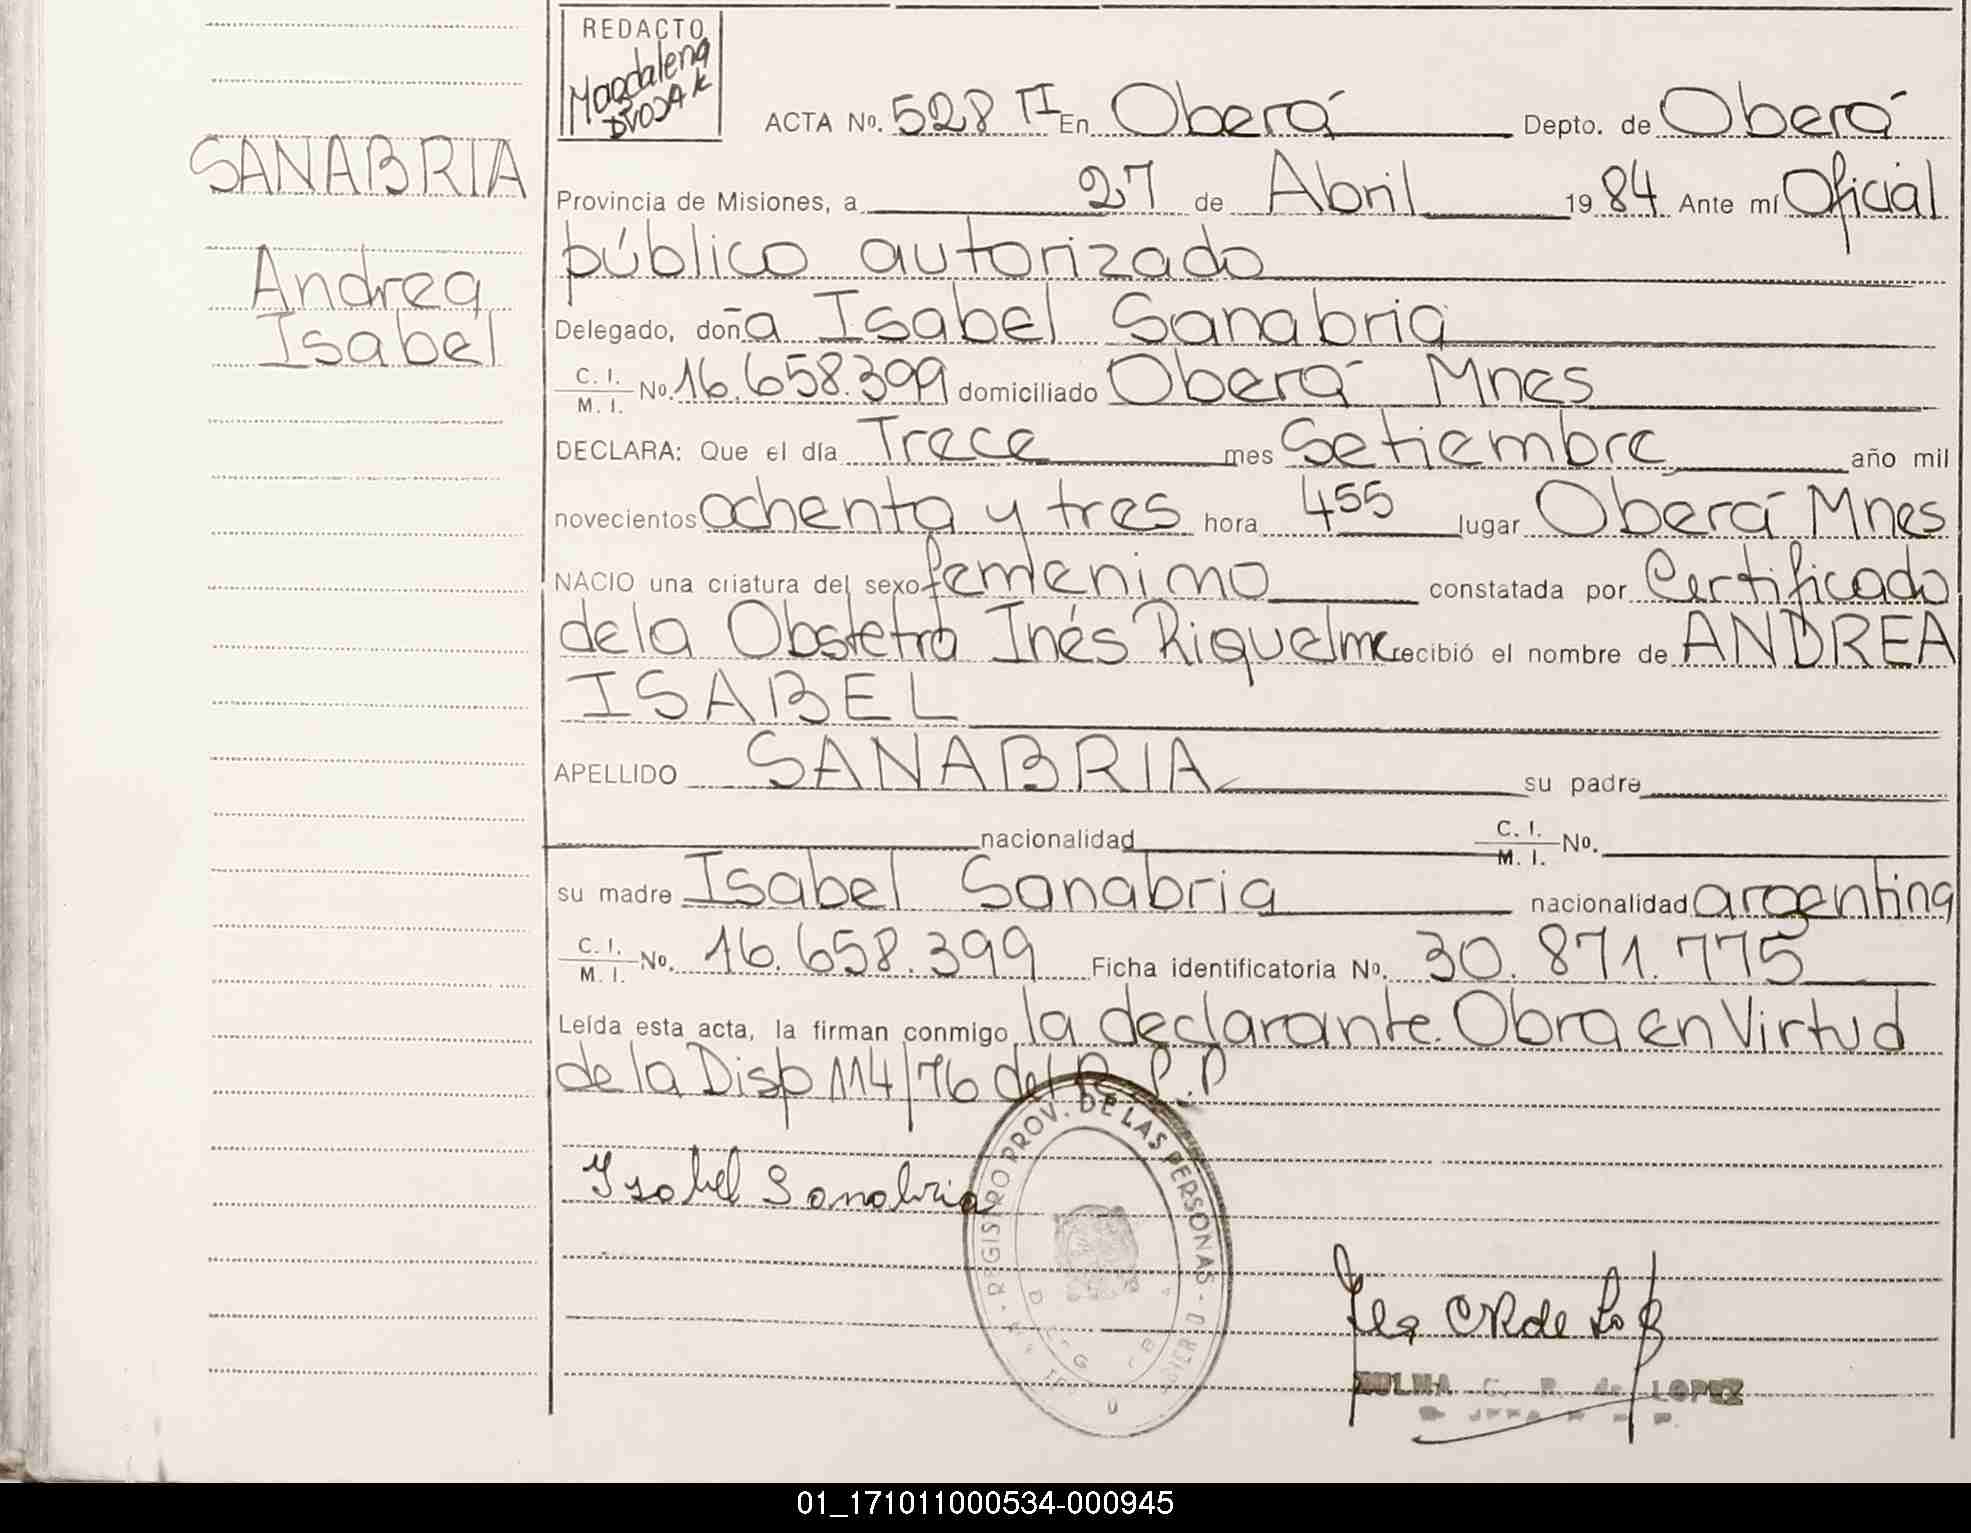 REDACTO
Magdalena
DVOJAK
ACTA No. 528 TI En Oberá Depto. de Oberá
SANABRIA
Provincia de Misiones, a 27 de Abril 1984 Ante mí Oficial
público autorizado
Andrea
Isabel
Delegado, doña Isabel Sanabria
C. I.
M. I. No. 16.658.399 domiciliado Oberá Mnes
DECLARA: Que el día Trece mes Setiembre año mil
novecientos ochenta y tres hora 455 lugar Oberá Mnes
NACIO una criatura del sexo femenino constatada por Certificado
de la Obstetra Inés Riquelme recibió el nombre de ANDREA
ISABEL
APELLIDO SANABRIA su padre
nacionalidad C. I.
M. I. No.
su madre Isabel Sanabria nacionalidad argentina
C. I.
M. I. No. 16.658.399 Ficha identificatoria No. 30.871.775
Leída esta acta, la firman conmigo la declarante. Obra en Virtud
de la Disp 114/76 del R.P.P
REGISTRO PROV. DE LAS PERSONAS
Isabel Sanabria
ZULMA C. R. de LOPEZ
01_171011000534-000945